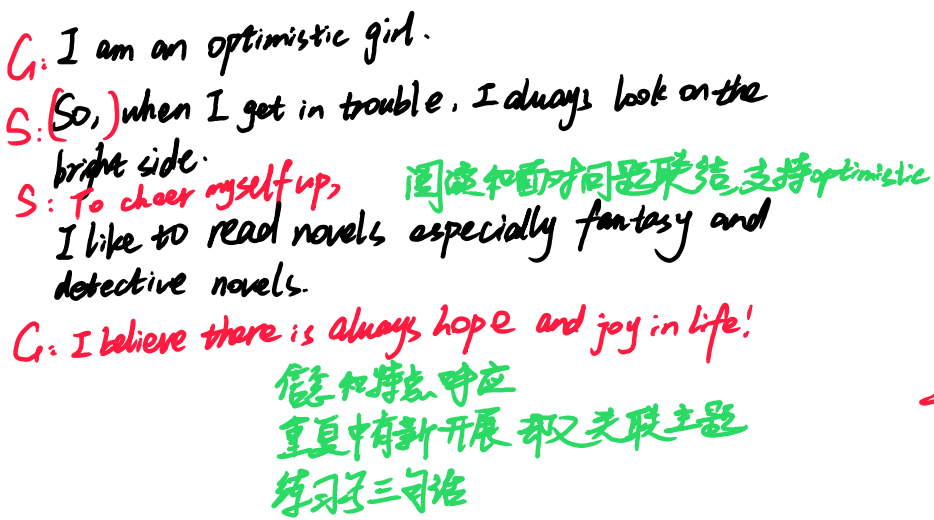 G: I am an optimistic girl.
S: (So,) when I get in trouble, I always look on the
bright side.
S: To cheer myself up, 阅读和面对问题联结,支持optimistic
I like to read novels especially fantasy and
detective novels.
G: I believe there is always hope and joy in life!
信念和特点呼应
重复中有新开展 却又关联主题
练习写三句话